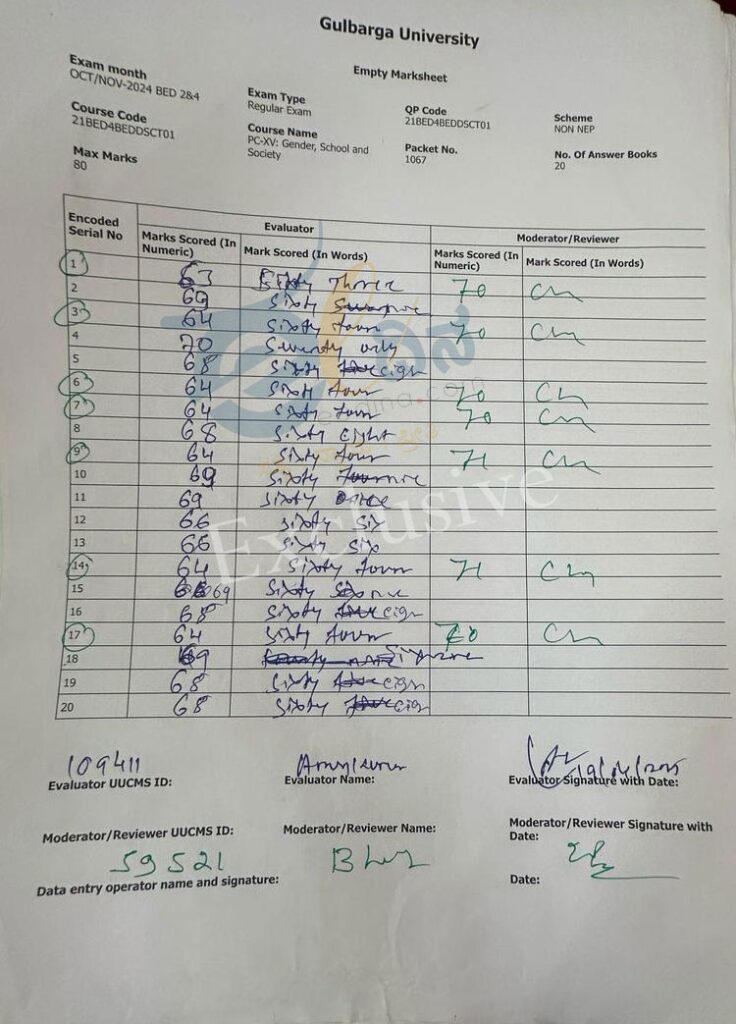 Gulbarga University
Empty Marksheet
Exam month
OCT/NOV-2024 BED 2&4
Exam Type
Regular Exam
QP Code
21BED4BEDDSCT01
Scheme
NON NEP
Course Code
21BED4BEDDSCT01
Course Name
PC-XV: Gender, School and
Society
Packet No.
1067
No. Of Answer Books
20
Max Marks
80
Encoded
Serial No
Evaluator
Moderator/Reviewer
Marks Scored (In
Numeric)
Mark Scored (In Words)
Marks Scored (In
Numeric)
Mark Scored (In Words)
1 63 Sixty Three
2 69 Sixty 70
3 64 Sixty four
4 70 Seventy only 70
5 68 Sixty eign
6 64 Sixty four 70
7 64 Sixty four 70
8 68 Sixty eight
9 64 Sixty four 71
10 69 Sixty
11 69 Sixty
12 66 Sixty Six
13 66 Sixty Six
14 64 Sixty four 71
15 69 Sixty
16 68 Sixty eign
17 64 Sixty four 70
18 69
19 68 Sixty eign
20 68 Sixty eign
Exclusive
109411
Evaluator UUCMS ID:
Evaluator Name:
Evaluator Signature with Date:
Moderator/Reviewer UUCMS ID:
Moderator/Reviewer Name:
Moderator/Reviewer Signature with
Date:
59521
Data entry operator name and signature:
Date: